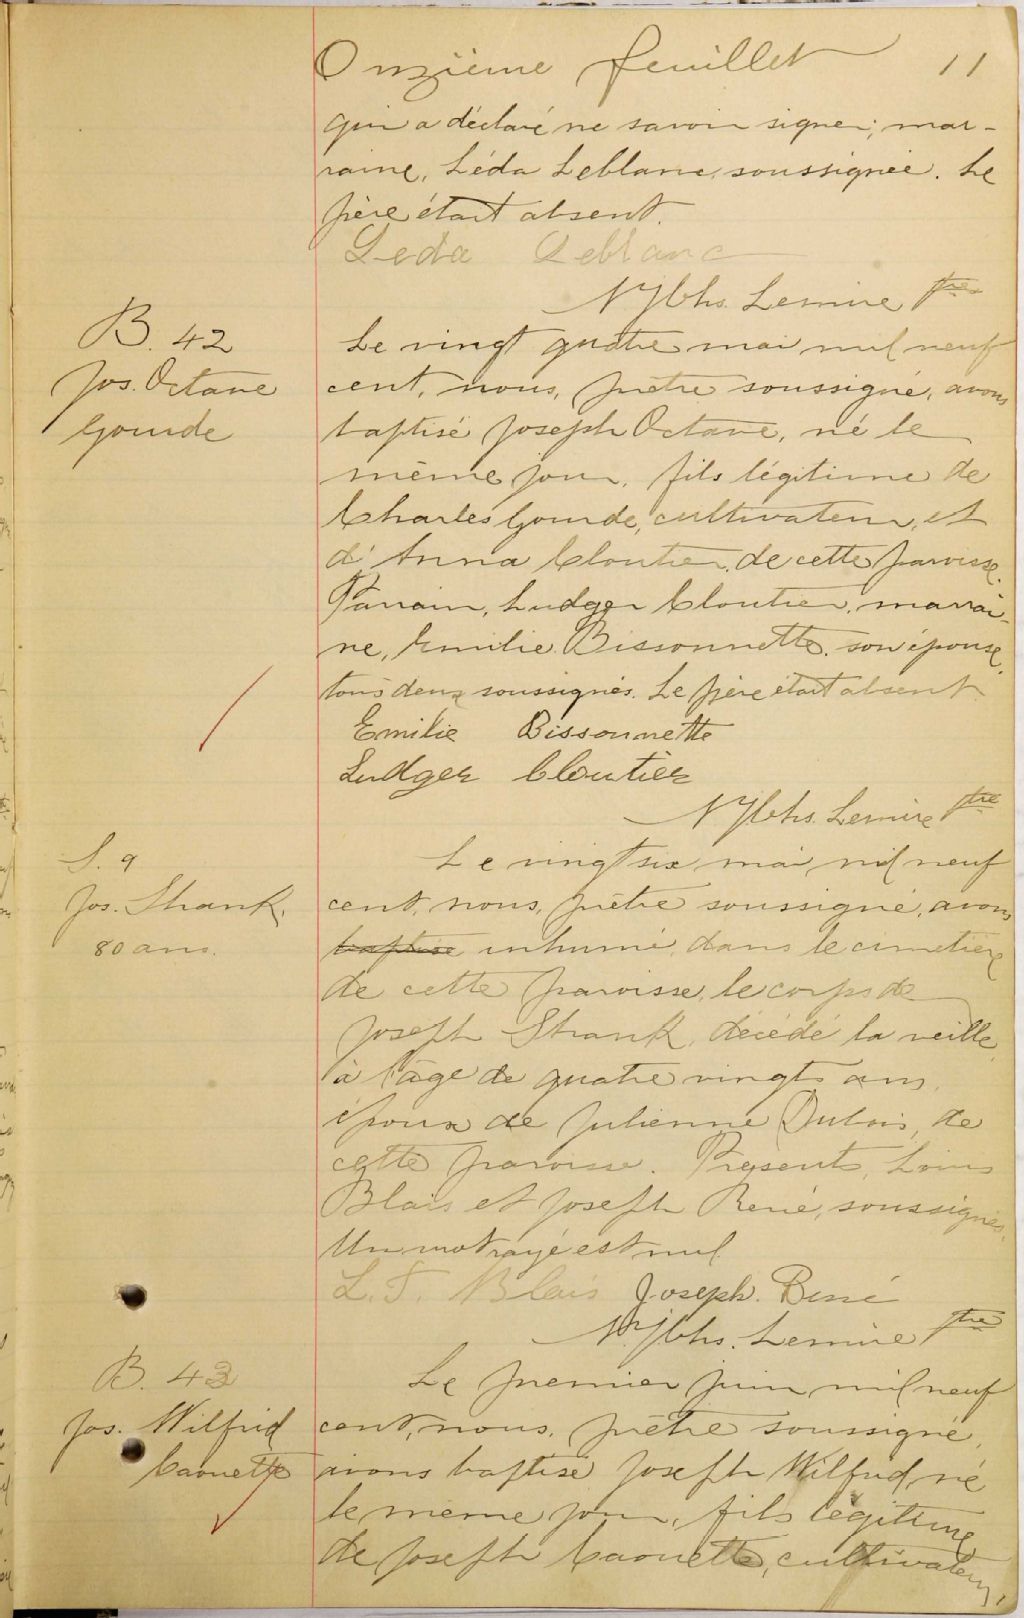 Onzième feuillet 11
qui a déclaré ne savoir signer; mar-
raine, Léda Leblanc, soussignée. Le
père était absent.
Leda Leblanc
N. J. Chs. Lemire Ptre
B. 42
Jos. Octave
Gourde
Le vingt quatre mai mil neuf
cent, nous, prêtre soussigné, avons
baptisé Joseph Octave, né le
même jour, fils légitime de
Charles Gourde, cultivateur, et
d'Anna Cloutier, de cette paroisse.
Parrain, Ludger Cloutier, marrai-
ne, Emilie Bissonnette, son épouse,
tous deux soussignés. Le père était absent
Emilie Bissonnette
Ludger Cloutier
N. J. Chs. Lemire Ptre
S. 9
Jos. Shank,
80 ans.
Le vingt six mai mil neuf
cent, nous, prêtre soussigné, avons
baptisé inhumé, dans le cimetière
de cette paroisse, le corps de
Joseph Shank, décédé la veille,
à l'âge de quatre vingts ans,
époux de Julienne Dubois, de
cette paroisse. Présents, Louis
Blais et Joseph René, soussignés.
Un mot rayé est nul
L. F. Blais Joseph. René
N. J. Chs. Lemire Ptre
B. 43
Jos. Wilfrid
Caouette
Le premier juin mil neuf
cent, nous, prêtre soussigné,
avons baptisé Joseph Wilfrid, né
le même jour, fils légitime
de Joseph Caouette, cultivateur,